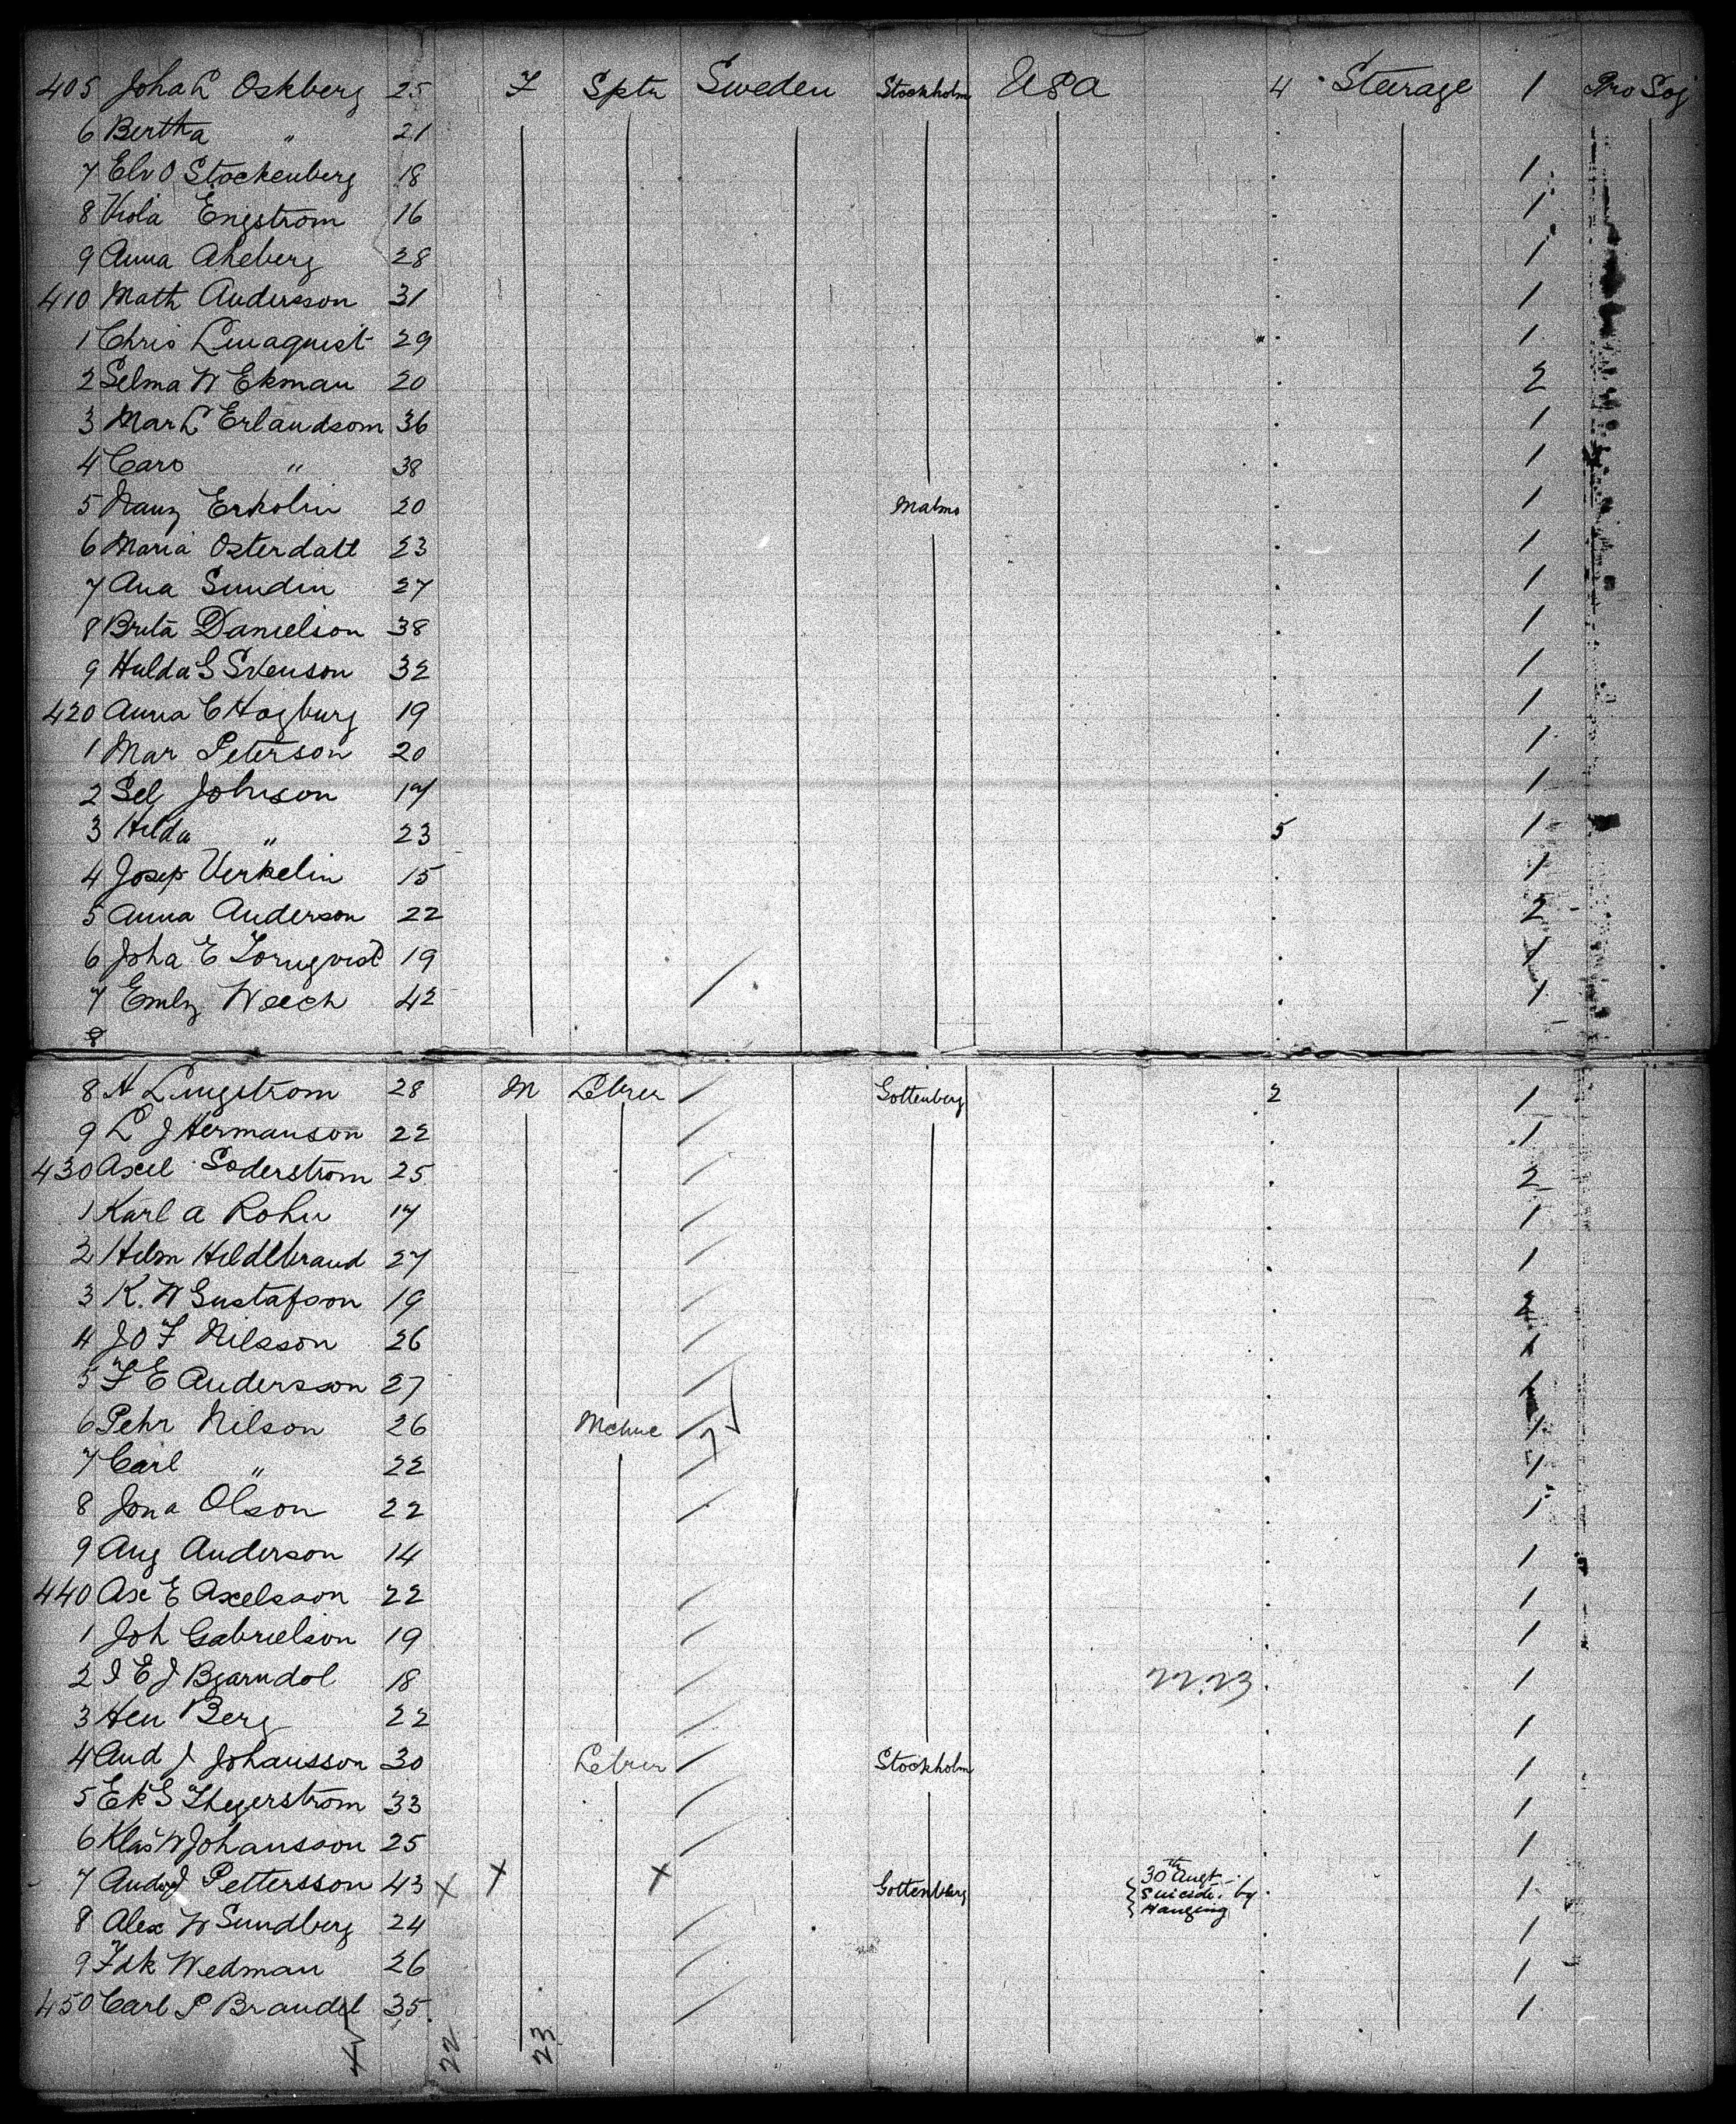 405 Joha L Oskberg 25 F Sptr Sweden Stockholm USA 4 Steerage 1 Pro Soj
6 Bertha " 21
7 Elv O Stockenberg 18 1
8 Viola Engstrom 16 1
9 Anna Aheberg 28 1
410 Math Andersson 31 1
1 Chris Linaquist 29 1
2 Selma W Ekman 20 2
3 Mar L Erlandsom 36 1
4 Caro " 38 1
5 Nany Erkolin 20 Malmo 1
6 Maria Osterdatt 23 1
7 Ana Sundin 27 1
8 Brita Danielson 38 1
9 Hulda S Svenson 32 1
420 Anna C Hogburg 19 1
1 Mar Peterson 20 1
2 Sel Johnson 17 1
3 Hilda " 23 5 1
4 Josep Verkelin 15 1
5 Anna Anderson 22 2
6 Joha E Tornqvist 19 1
7 Emly Weech 42 1
8
8 A Lingstrom 28 M Lebrer Gottenberg 2 1
9 L J Hermanson 22 1
430 Axel Soderstrom 25 2
1 Karl A Rohn 17 1
2 Helm Hildebrand 27 1
3 K. W Gustafson 19 2
4 J O F Nilsson 26 1
5 F E Andersson 27 1
6 Pehr Nilson 26 Mchne 1
7 Carl " 22 1
8 Jona Olson 22 1
9 Aug Anderson 14 1
440 Axe E Axelsson 22 1
1 Joh Gabrielson 19 1
2 I E J Bjarndol 18 22.23 1
3 Hen Berg 22 1
4 And J Johansson 30 Lebrer Stockholm 1
5 Ek S Thegerstrom 33 1
6 Klas W Johansson 25 1
7 Andw J Pettersson 43 X X X Gottenberg 30th Augt Suicide by Hanging 1
8 Alex W Sundberg 24 1
9 Fdk Wedman 26 1
450 Carl P Brandel 35 1
22 23